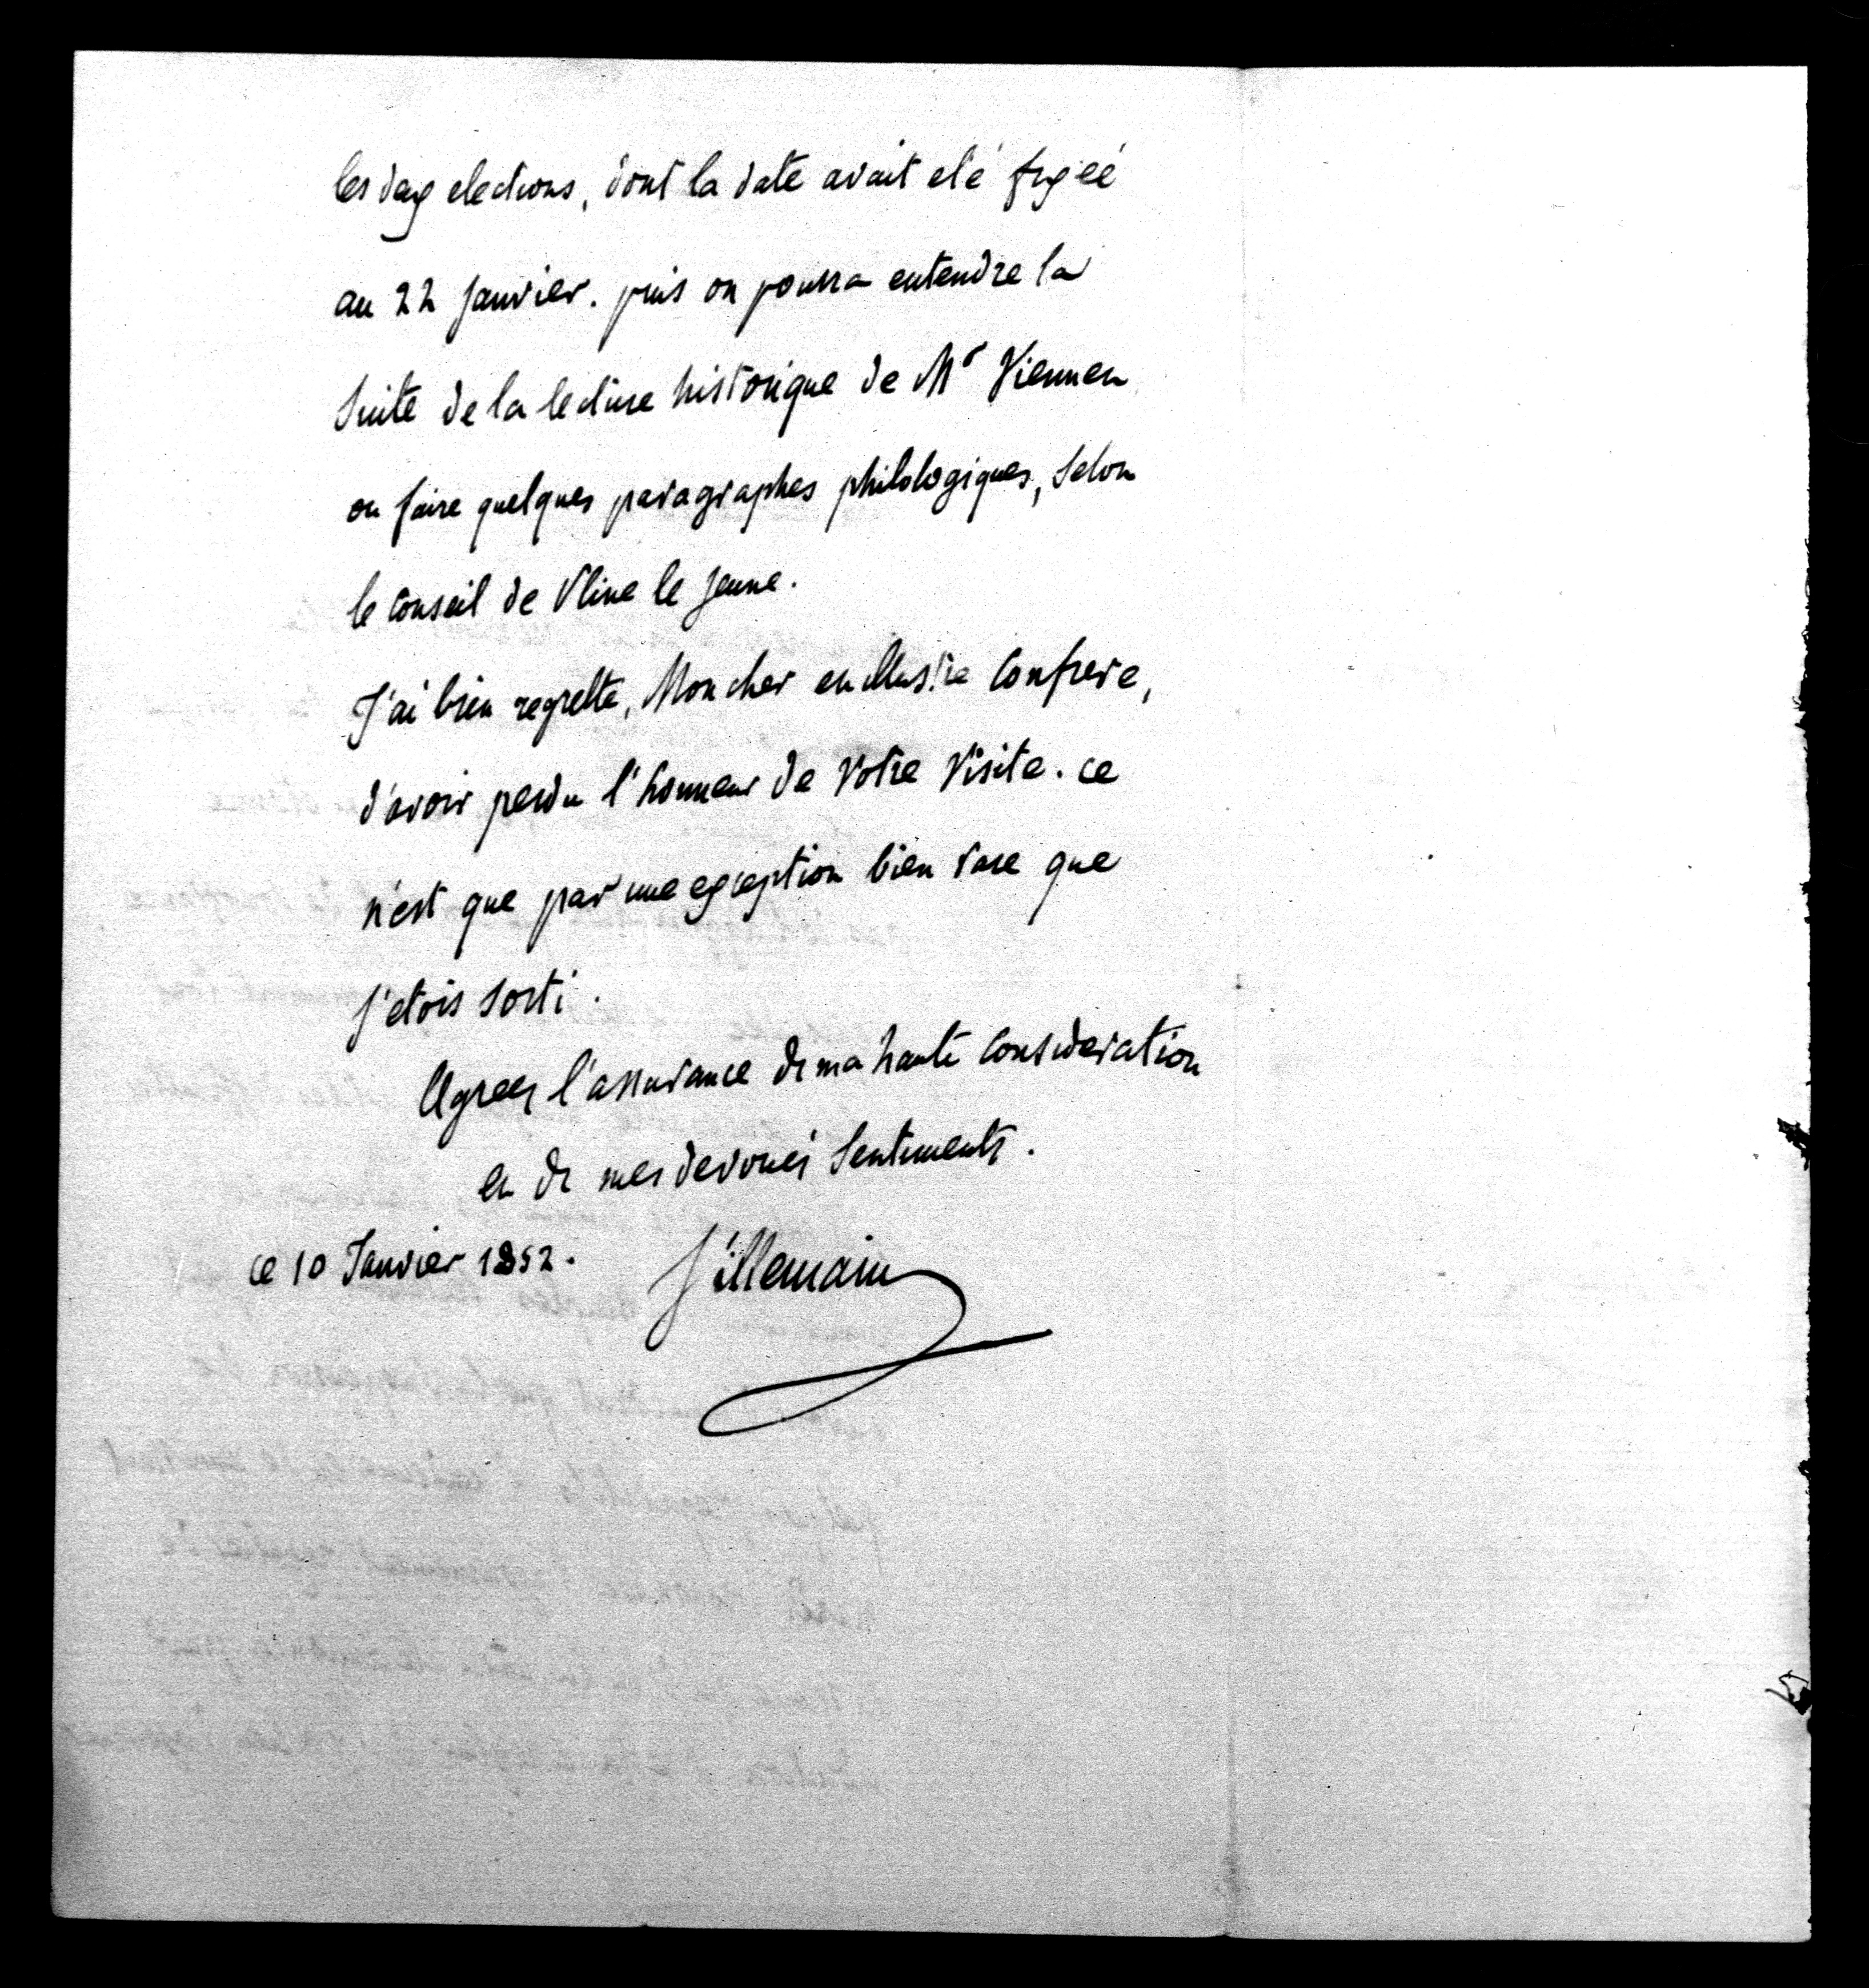 les deux elections, dont la date avait eté fixeé
au 22 janvier. puis on pourra entendre la
suite de la lecture historique de Mr Viennet
ou faire quelques paragraphes philologiques, selon
le conseil de Pline le jeune.
J'ai bien regretté, Mon cher et illustre Confrere,
d'avoir perdu l'honneur de votre visite. ce
n'est que par une exception bien rare que
j'etois sorti.
Agreez l'assurance de ma haute consideration
et de mes devoués sentiments.
ce 10 Janvier 1852. Villemain